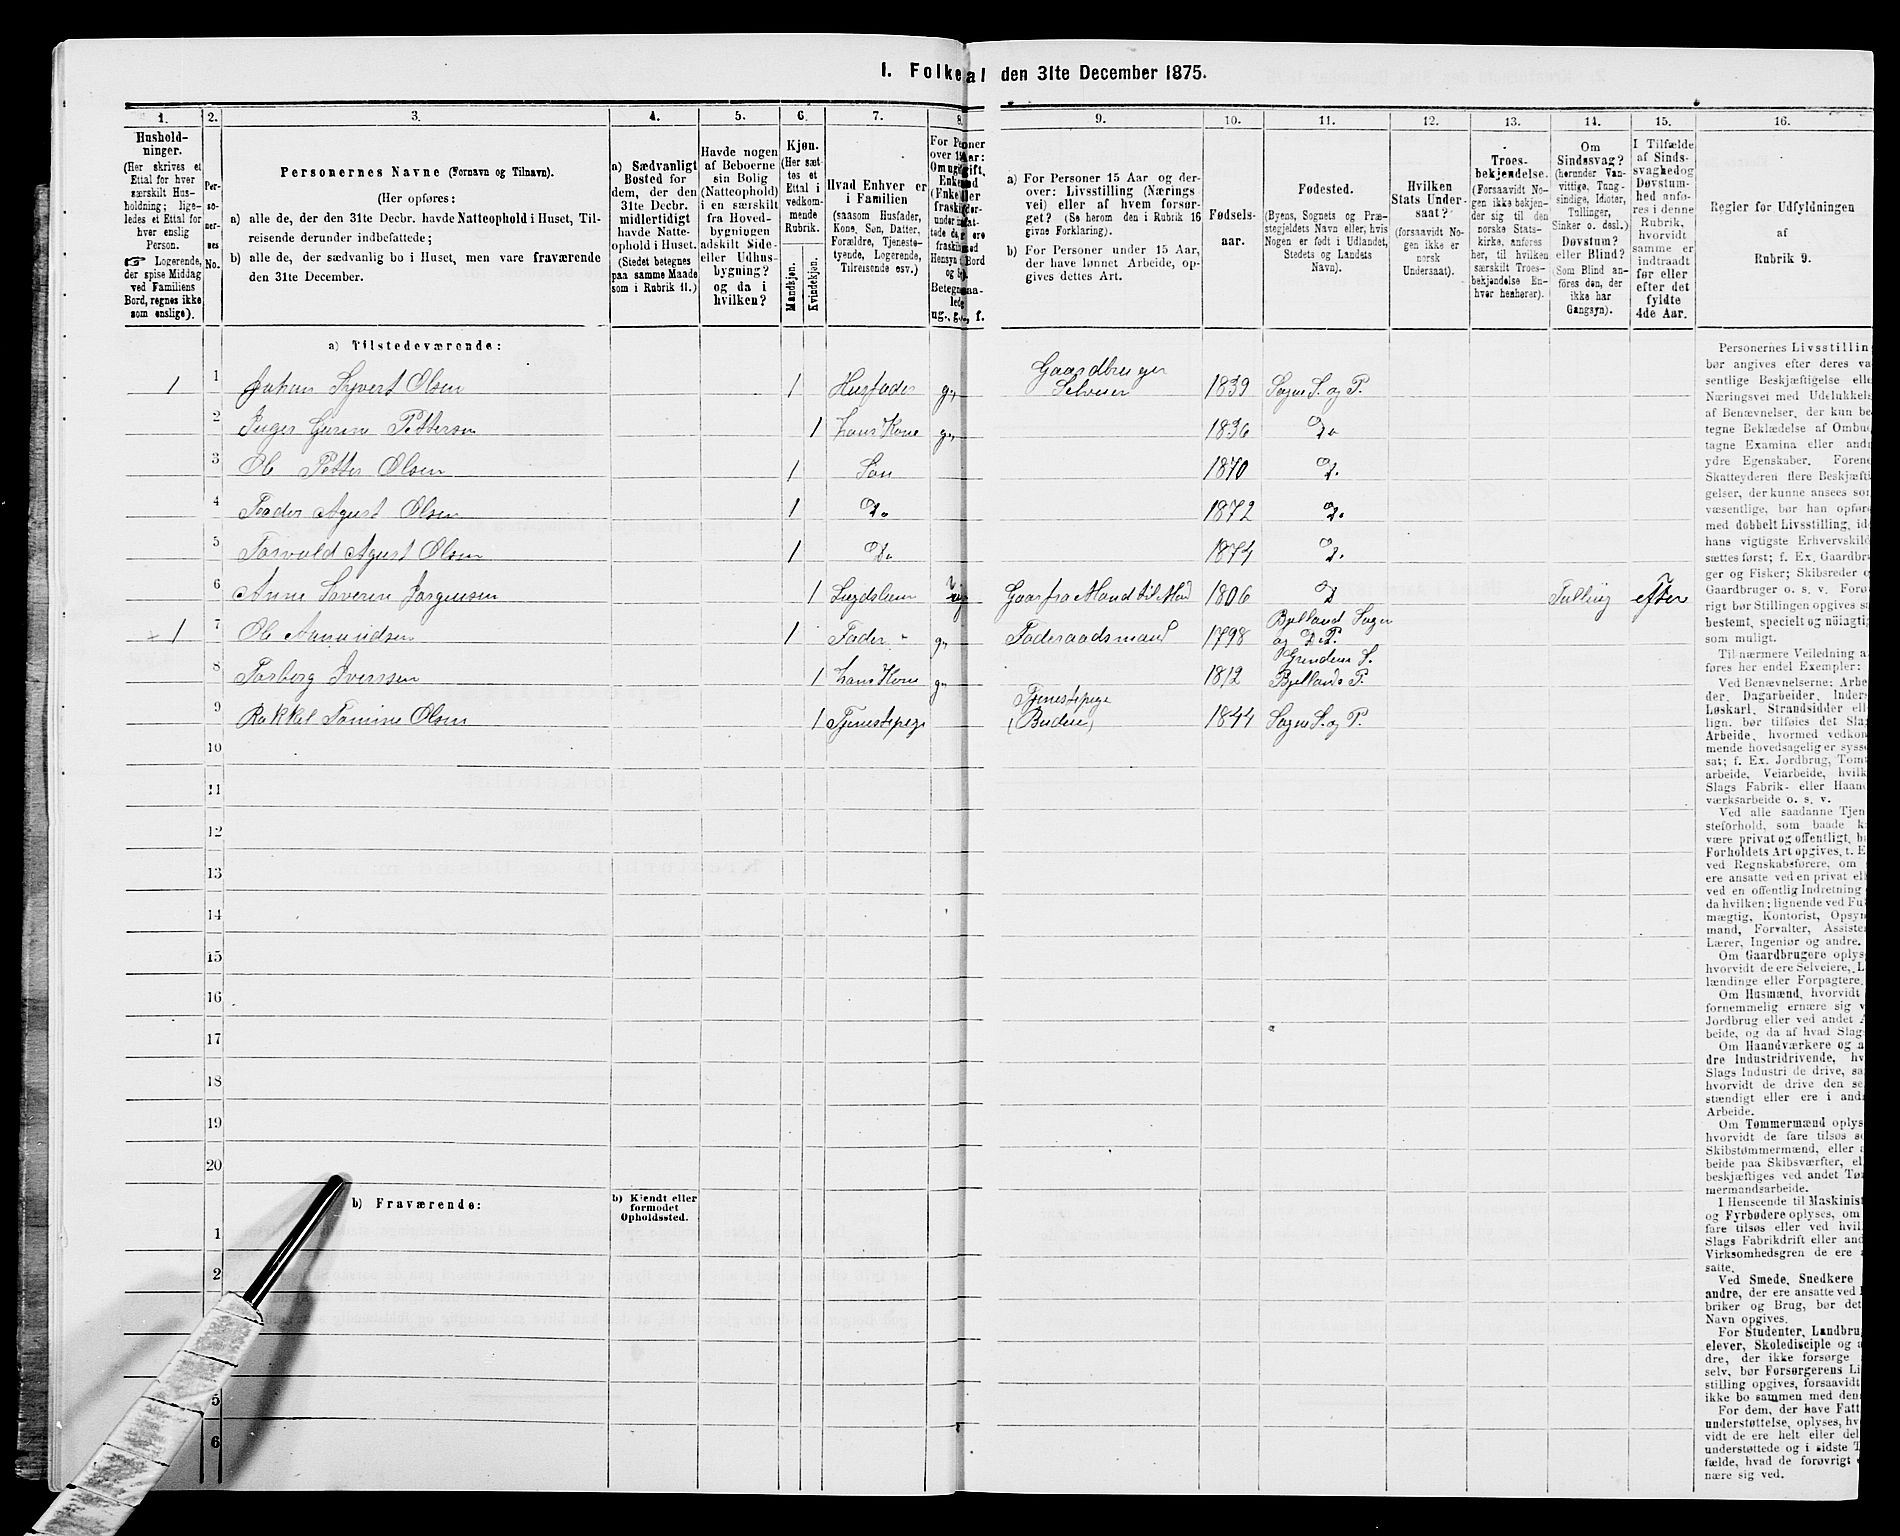 I. Folketal den 31te December 1875.
1. 2. 3. 4. 5. 6. 7. 8. 9. 10. 11. 12. 13. 14. 15. 16.
Hushold-
ninger.
(Her skrives et
Ettal for hver
særskilt Hus-
holdning; lige-
ledes et Ettal for
hver enslig
Person.
☞ Logerende,
der spise Middag
ved Familiens
Bord, regnes ikke
som enslige).
Per-
so-
ner-
nes
No.
Personernes Navne (Fornavn og Tilnavn).
(Her opføres:
a) alle de, der den 31te Decbr. havde Natteophold i Huset, Til-
reisende derunder indbefattede;
b) alle de, der sædvanlig bo i Huset, men vare fraværende
den 31te December.
a) Sædvanligt
Bosted for
dem, der den
31te Decbr.
midlertidigt
havde Natte-
ophold i Huset.
(Stedet betegnes
paa samme Maade
som i Rubrik 11.)
Havde nogen
af Beboerne
sin Bolig
(Natteophold)
i en særskilt
fra Hoved-
bygningen
adskilt Side-
eller Udhus-
bygning?
og da i
hvilken?
Kjøn.
(Her sæt-
tes et
Ettal i
vedkom-
mende
Rubrik.
Mandkjøn.
Kvindekjøn.
Hvad Enhver er
i Familien
(saasom Husfader,
Kone, Søn, Datter,
Forældre, Tjeneste-
tyende, Logerende,
Tilreisende osv.)
a) For Personer 15 Aar og der-
over: Livsstilling (Nærings
vei) eller af hvem forsør-
get? (Se herom den i Rubrik 16
givne Forklaring).
b) For Personer under 15 Aar,
der have lønnet Arbeide, op-
gives dettes Art.
Fødsels-
aar.
Fødested.
(Byens, Sognets og Præ-
stegjeldets Navn eller, hvis
Nogen er født i Udlandet,
Stedets og Landets
Navn).
Hvilken
Stats Under-
saat?
(forsaavidt No-
gen ikke er
norsk
Undersaat).
Troes-
bekjendelse.
(Forsaavidt No-
gen ikke bekjen-
der sig til den
norske Stats-
kirke, anføres
her, til hvilken
særskilt Troes-
bekjendelse En-
hver henhører).
Om
Sindssvag?
(herunder Van-
vittige, Tung-
sindige, Idioter,
Tullinger,
Sinker o. desl.)
Døvstum?
eller Blind?
(Som Blind an-
føres den, der
ikke har
Gangsyn).
I Tilfælde
af Sinds-
svaghed og
Døvstum-
hed anfø-
res i denne
Rubrik,
hvorvidt
samme er
indtraadt
før eller
efter det
fyldte
4de Aar.
Regler for Udfyldningen
af
Rubrik 9.
a) Tilstedeværende:
1 1 Johan Syvert Olsen 1 Husfader g, Gaardbruger Selveier 1839 Sogne S. og P.
2 Inger Gurine Pettersen 1 hans Kone g, 1836 Do
3 Ole Petter Olsen 1 Søn 1870 D.
4 Peder Agust Olsen 1 Do 1872 Do
5 Torvald Agust Olsen 1 Do 1874 D.
6 Anne Severine Jørgensen 1 ug Gaar fra Mand til Mand 1806 D Tulling efter
1 7 Ole Aamundsen 1 Fader g, Føderaadsmand 1798 Bjelland Sogn og D P.
8 Torborg Iverssen 1 hans Kone g, 1812 Grindem S. Bjellands P.
9 Rakkel Tomine Olsen 1 Tjenestepige Tjenestepige (Budeie) 1844 Sogne S. og P.
10
11
12
13
14
15
16
17
18
19
20
b) Fraværende:
b) Kjendt eller
formodet
Opholdssted.
1
2
5
6
Personernes Livsstilling
bør angives efter deres væ
sentlige Beskjæftigelse elle
Næringsvei med Udelukkels
af Benævnelser, der kun be
tegne Beklædelse af Ombud
tagne Examina eller andr
ydre Egenskaber. Forene
Skatteyderen flere Beskjæfti
gelser, der kunne ansees som
væsentlige, bør han opføre
med dobbelt Livsstilling, id
hans vigtigste Erhvervskild
sættes først; f. Ex. Gaardbru
ger og Fisker; Skibsreder o
Gaardbruger o. s. v. Forø
rigt bør Stillingen opgives sa
bestemt, specielt og nöiagtig
som muligt.
Til nærmere Veiledning a
føres her endel Exempler:
Ved Benævnelserne: Arbe
der, Dagarbeider, Inders
Løskarl, Strandsidder ell
lign. bør tilføies det Slag
Arbeide, hvormed vedkom
mende hovedsagelig er sysse
sat; f. Ex. Jordbrug, Tomt
arbeide, Veiarbeide, hvilk
Slags Fabrik- eller Haand
værksarbeide o. s. v.
Ved alle saadanne Tjen
steforhold, som baade k
være privat og offentligt, b
Forholdets Art opgives, t. E
ved Regnskabsførere, om d
ere ansatte ved en privat el
ved en offentlig Indretning
da hvilken; lignende ved Ful
mægtig, Kontorist, Opsyn
mand, Forvalter, Assisten
Lærer, Ingeniør og andre.
Om Gaardbrugere oplys
hvorvidt de ere Selveiere, L
lændinge eller Forpagtere.
Om Husmænd, hvorvidt
fornemmelig ernære sig v
Jordbrug eller ved andet A
beide, og da af hvad Slags
Om Haandværkere og a
dre Industridrivende, hv
Slags Industri de drive, sa
hvorvidt de drive den se
stændigt eller ere i andr
Arbeide.
Om Tømmermænd oplys
hvorvidt de fare tilsøs so
Skibstømmermænd, eller a
beide paa Skibsværfter, el
beskjæftiges ved andet Tøm
mermandsarbeide.
I Henseende til Maskinist
og Fyrbødere oplyses, om
fare tilsøs eller ved hvil
Slags Fabrikdrift eller and
Virksomhedsgren de ere a
satte.
Ved Smede, Snedkere
andre, der ere ansatte ved
briker og Brug, bør det
Navn opgives.
For Studenter, Landbrug
elever, Skoledisciple og a
dre, der ikke forsørge
selv, bør Forsørgerens Li
stilling opgives, forsaavidt
ikke bo sammen med dem
For dem, der have Fatt
understøttelse, oplyses, hv
vidt de ere helt eller del
understøttede og i sidste T
fælde, hvad de forøvrigt
nære sig ved.